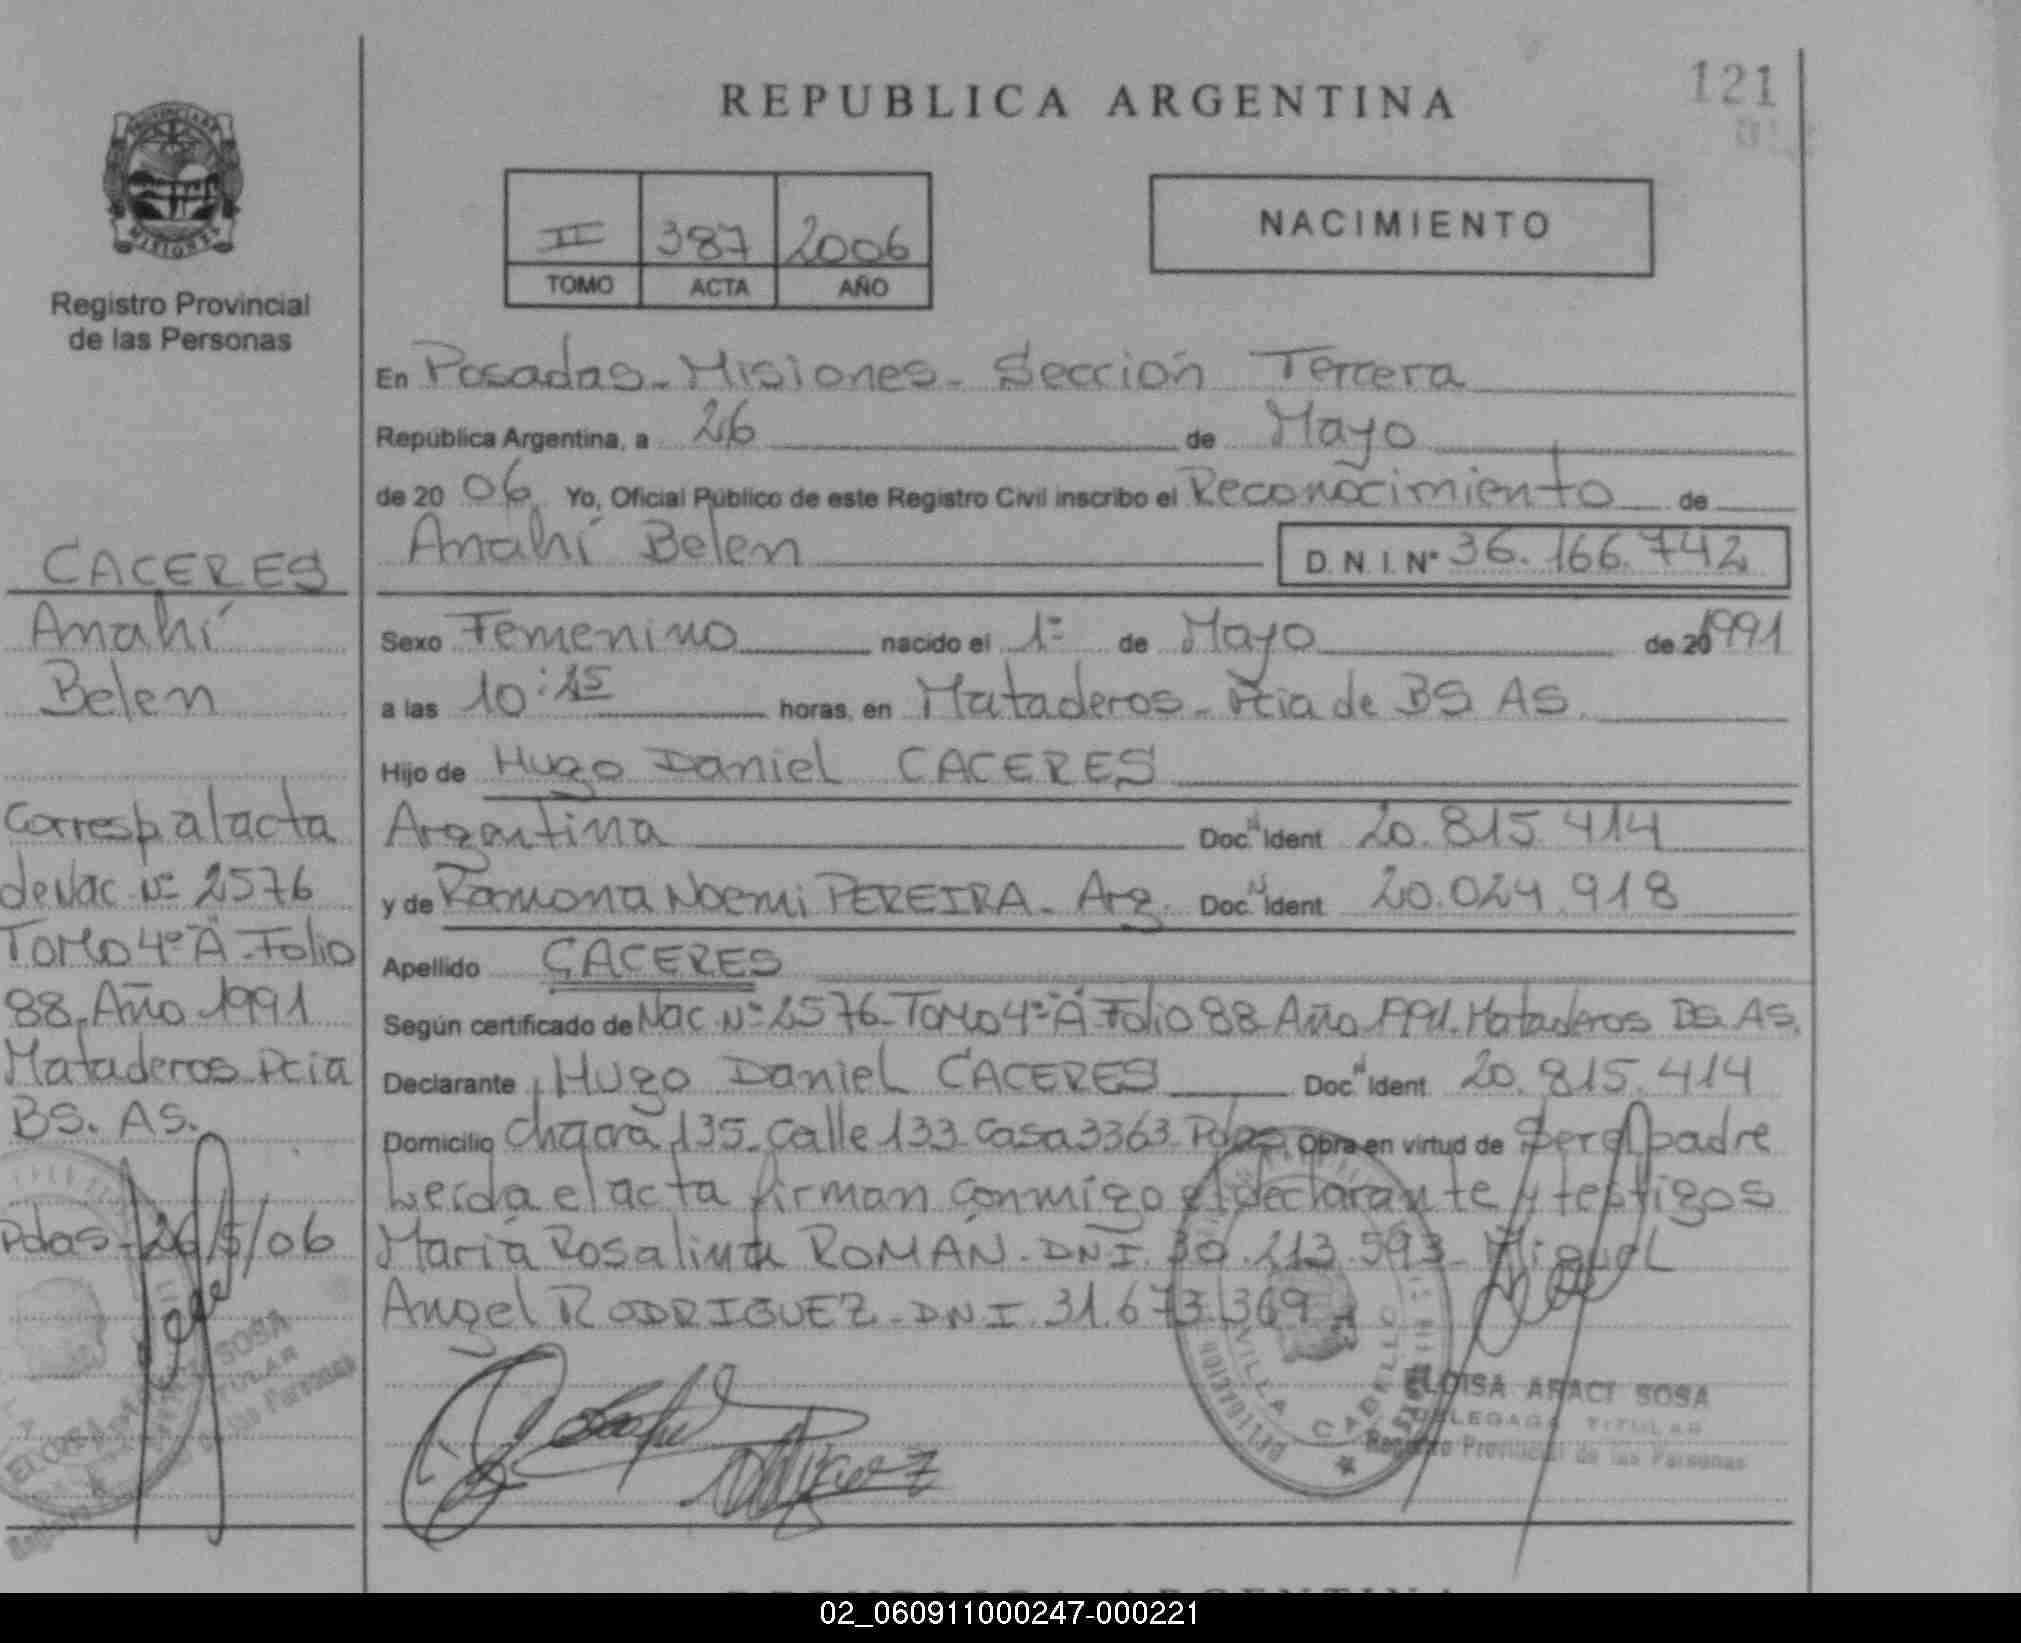 REPUBLICA ARGENTINA
121
PROVINCIA DE
MISIONES
Registro Provincial
de las Personas
II 387 2006
TOMO ACTA AÑO
NACIMIENTO
En Posadas-Misiones-Sección Tercera
República Argentina, a 26 de Mayo
de 2006. Yo, Oficial Público de este Registro Civil inscribo el Reconocimiento de
Anahí Belen D. N. I. Nº 36.166.742
Sexo Femenino nacido el 1º de Mayo de 20 1991
a las 10:25 horas, en Mataderos-Pcia de BS AS.
Hijo de Hugo Daniel CACERES
Argentina Doc. N Ident 20.815.414
y de Ramona Noemi PEREIRA-Arg. Doc. N Ident 20.024.918
Apellido CACERES
Según certificado de Nac Nº 2576-Tomo 4º"A"-Folio 88-Año 1991-Mataderos BS. AS.
Declarante Hugo Daniel CACERES Doc N Ident. 20.815.414
Domicilio Chacra 135-Calle 133-Casa 3363-Pdas. Obra en virtud de Ser el padre
Leída el acta firman conmigo el declarante y testigos
María Rosalinda ROMÁN-DNI.30.213.593-Miguel
Angel RODRIGUEZ-DNI.31.673.369
VILLA CABELLO
ELOISA ARACI SOSA
DELEGADA TITULAR
Registro Provincial de las Personas
CACERES
Anahí
Belen
Corresp. al acta
de Nac. Nº 2576
Tomo 4º"A"-Folio
88-Año 1991
Mataderos Pcia
BS. AS.
Pdas-26/5/06
02_060911000247-000221